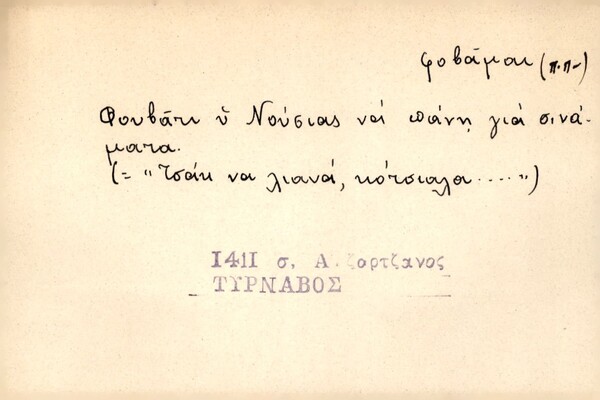 φοβᾶμαι (π.π-)
Φουβᾶτι ὓ Νούσιας νά πάνῃ γιά σινά-
ματα.
(= "Τσάκ να λιανά, κότσιαλα....")
1411 σ. Α. Ζορτζάνος
ΤΥΡΝΑΒΟΣ